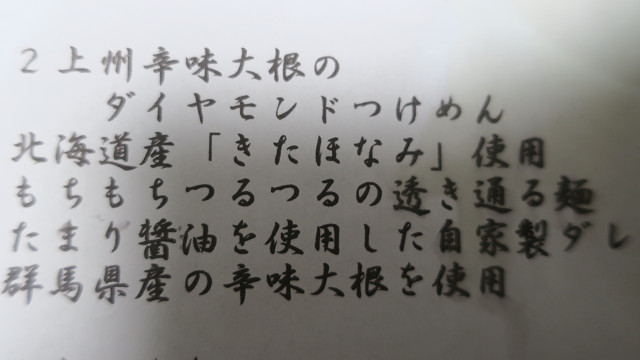 2上州辛味大根の
ダイヤモンドつけめん
北海道産「きたほなみ」使用
もちもちつるつるの透き通る麺
たまり醬油を使用した自家製ダレ
群馬県産の辛味大根を使用